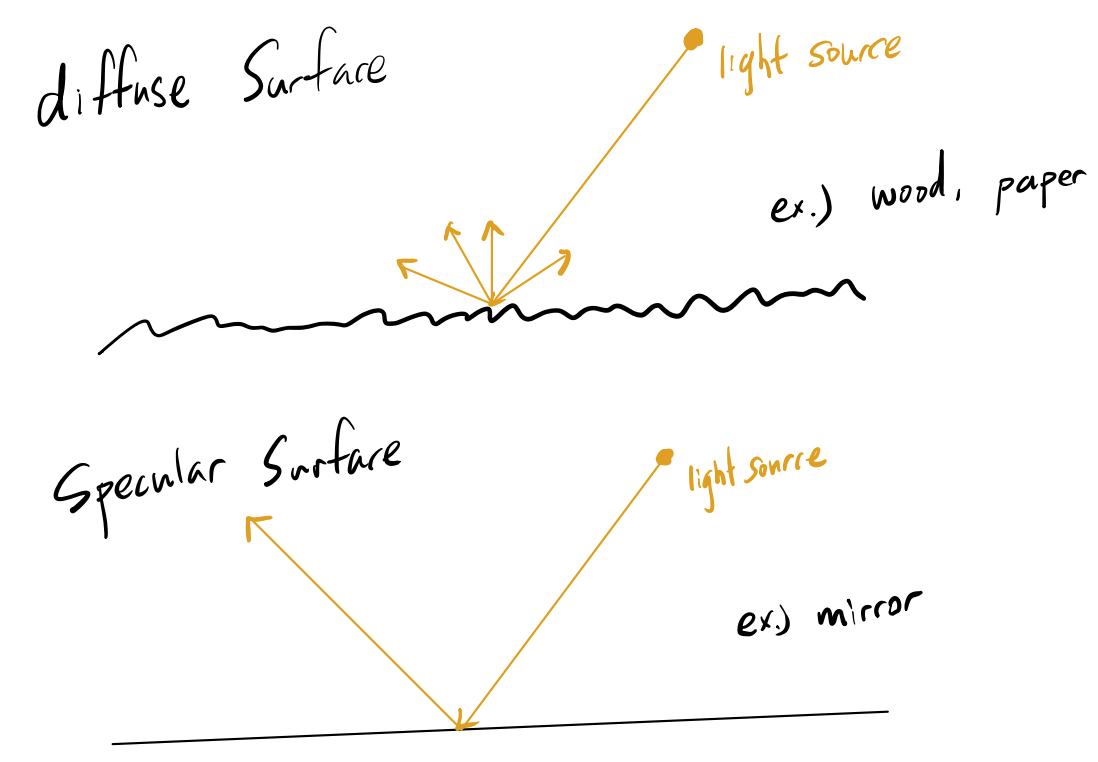 diffuse Surface
light source
ex.) wood, paper
Specular Surface
light source
ex.) mirror